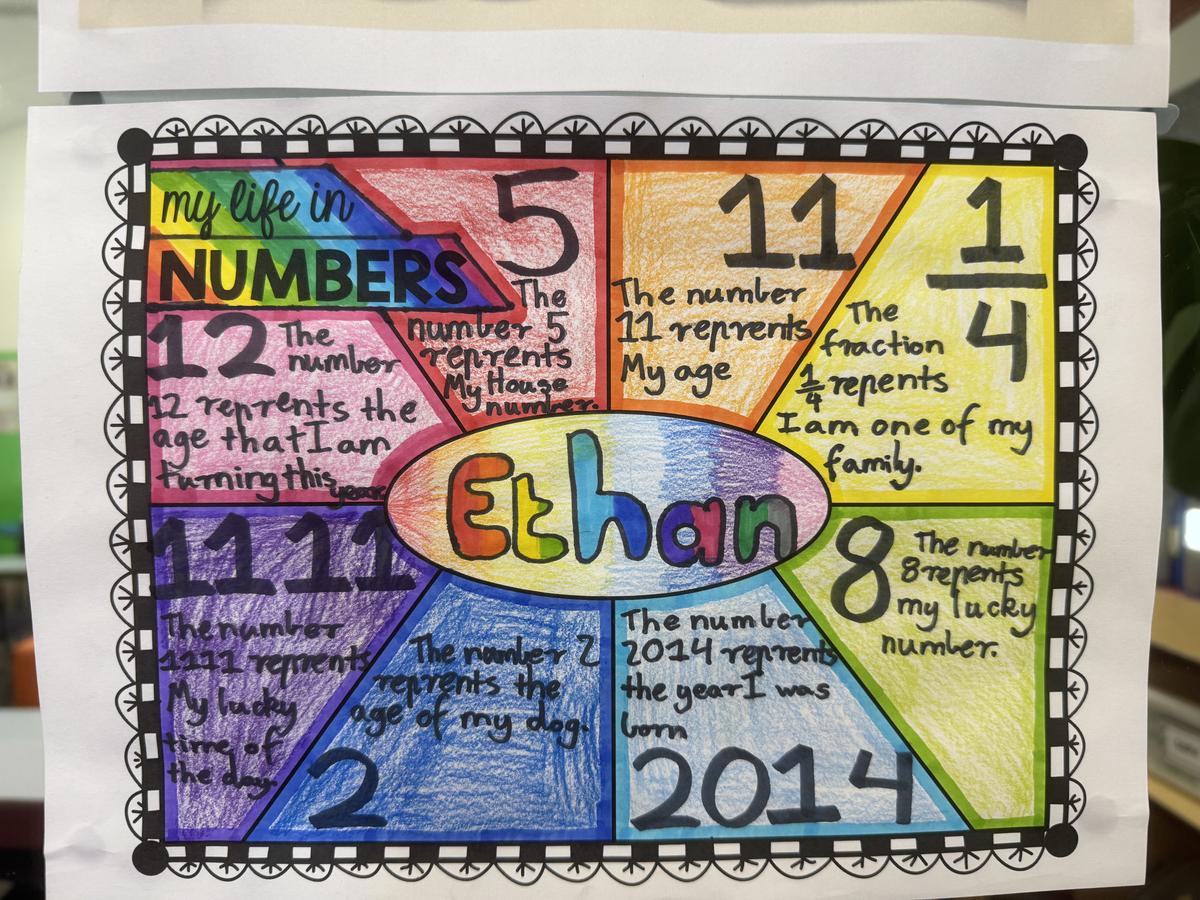 my life in
NUMBERS
5
The
number 5
reprents
My House
number.
11
The number
11 reprents
My age
1
4
The
fraction
1/4 repents
I am one of my
family.
12
The
number
12 reprents the
age that I am
turning this
year
Ethan
8
The number
8 repents
my lucky
number.
1111
The number
1111 reprents
My lucky
time of
the day.
The number 2
reprents the
age of my dog.
2
The number
2014 reprents
the year I was
born
2014